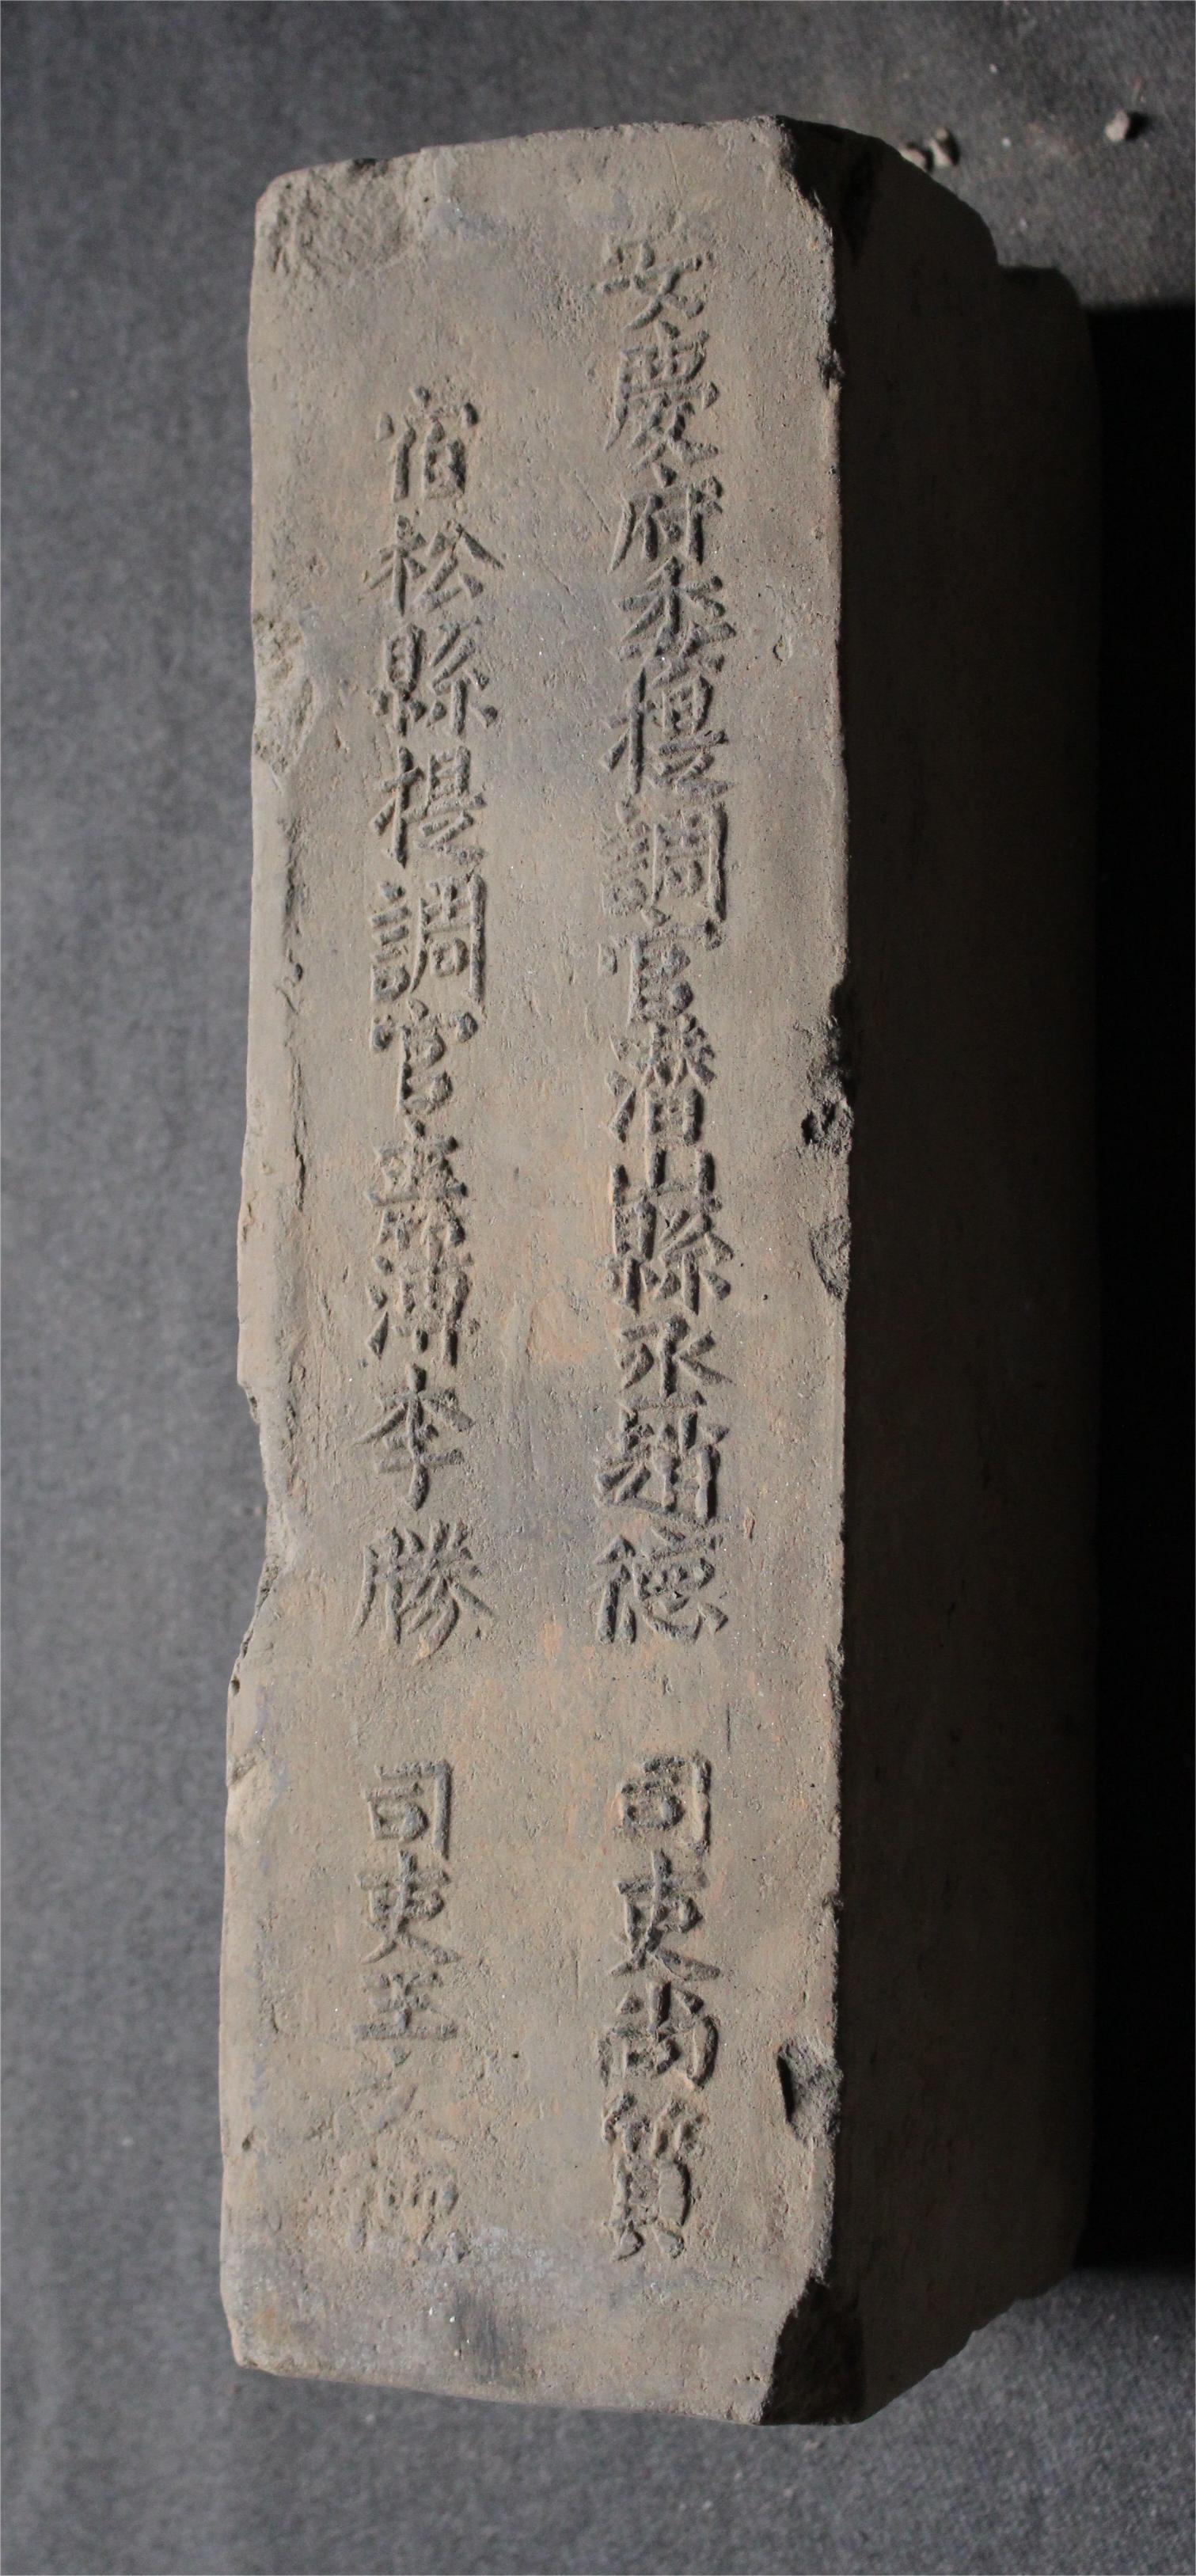 安慶府委提調官灊山縣丞趙德 司吏尚質
宿松縣提調官主簿李勝 司吏王文德